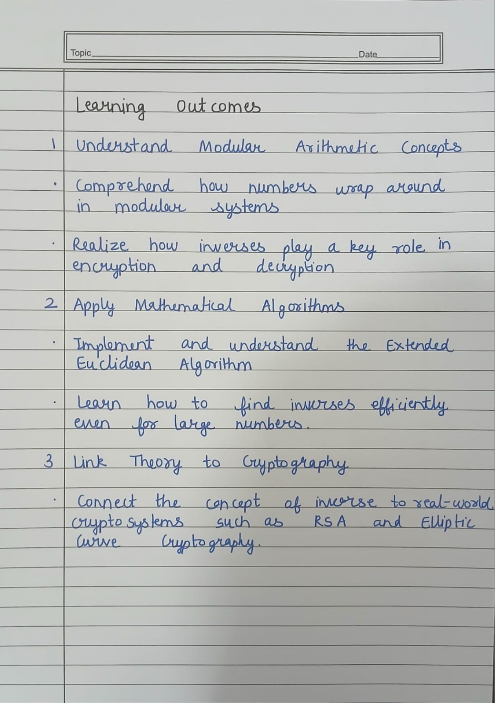 Topic
Date
Learning Outcomes
1 Understand Modular Arithmetic Concepts
· Comprehend how numbers wrap around
in modular systems
· Realize how inverses play a key role in
encryption and decryption
2 Apply Mathematical Algorithms
· Implement and understand the Extended
Euclidean Algorithm
· Learn how to find inverses efficiently
even for large numbers.
3 Link Theory to Cryptography
· Connect the concept of inverse to real-world
cryptosystems such as RSA and Elliptic
Curve Cryptography.